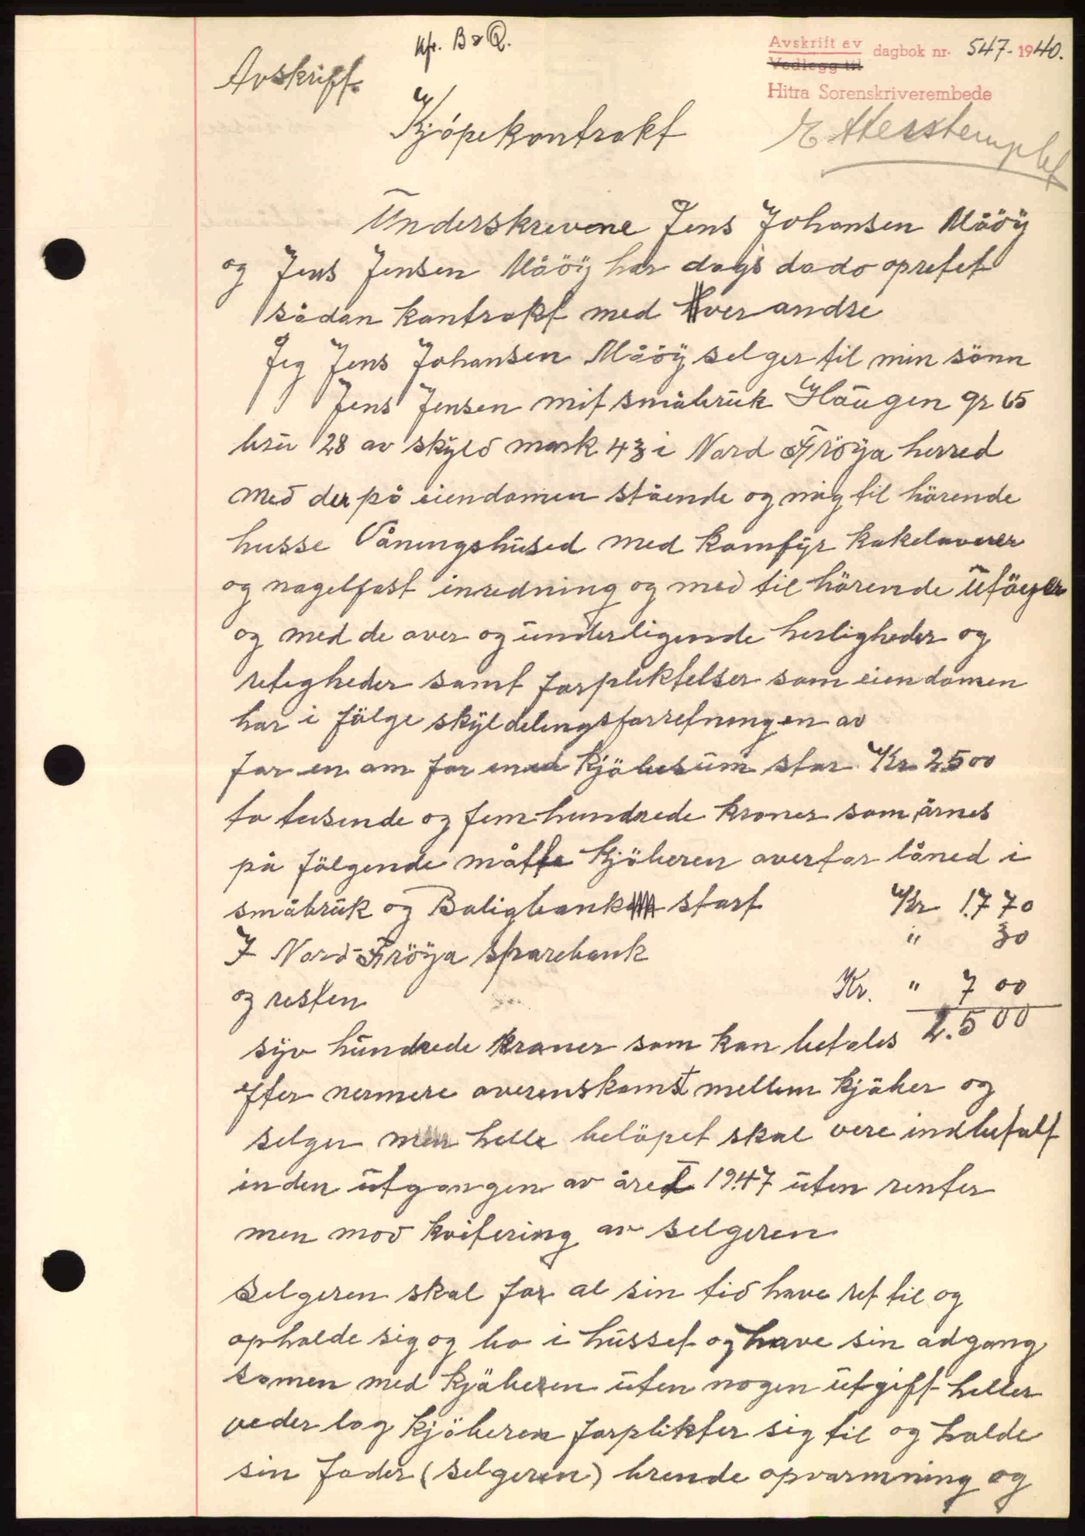 Kfr. B & Q.
Avskrift ev dagbok nr. 547-1940.
Vedlegg til
Hitra Sorenskriverembede
Avskrift.
Etterstemplet
Kjöpekontrakt
Underskrevene Jens Johansen Måöÿ
og Jens Jensen Måöÿ har dags dado opretet
sådan kontrakt med hver andre
Jeg Jens Johansen Måöÿ selger til min sönn
Jens Jensen mit småbrük Haügen gr 65
brü 28 av skÿld mark 43 i Nord Fröÿa herred
med der på eiendomen stående og mig til hörende
husse Våningshüsed med komfÿr kakelovner
og nagelfast inredning og med til hörende
og med de over og ünderligende herligheder og
retigheder samt forpliktelser som eiendomen
har i fölge skÿldelingsforretningen av
for en om for ened kjöbesüm stor Kr 2500
to tusende og fem hundrede kroner som årnes
på fölgende måtte kjöberen overfor låned i
småbrük og Boligbank stort Kr 1.770
I Nord-Fröÿa sparebank " 30
og resten Kr. " 700
2.500
sÿv hündrede kroner som kan betales
efter nermere overenskomst mellem kjöber og
selger men helle belöpet skal vere indbetalt
inden ütgangen av året 1947 üten renter
men mod kvitering av selgeren
Selgeren skal for al sin tid have ret til og
opholde sig og bo i hüsset og have sin adgang
samen med kjöberen üten nogen ütgift heller
vederlag kjöberen forplikter sig til og holde
sin fader (selgeren) brende opvarmning og